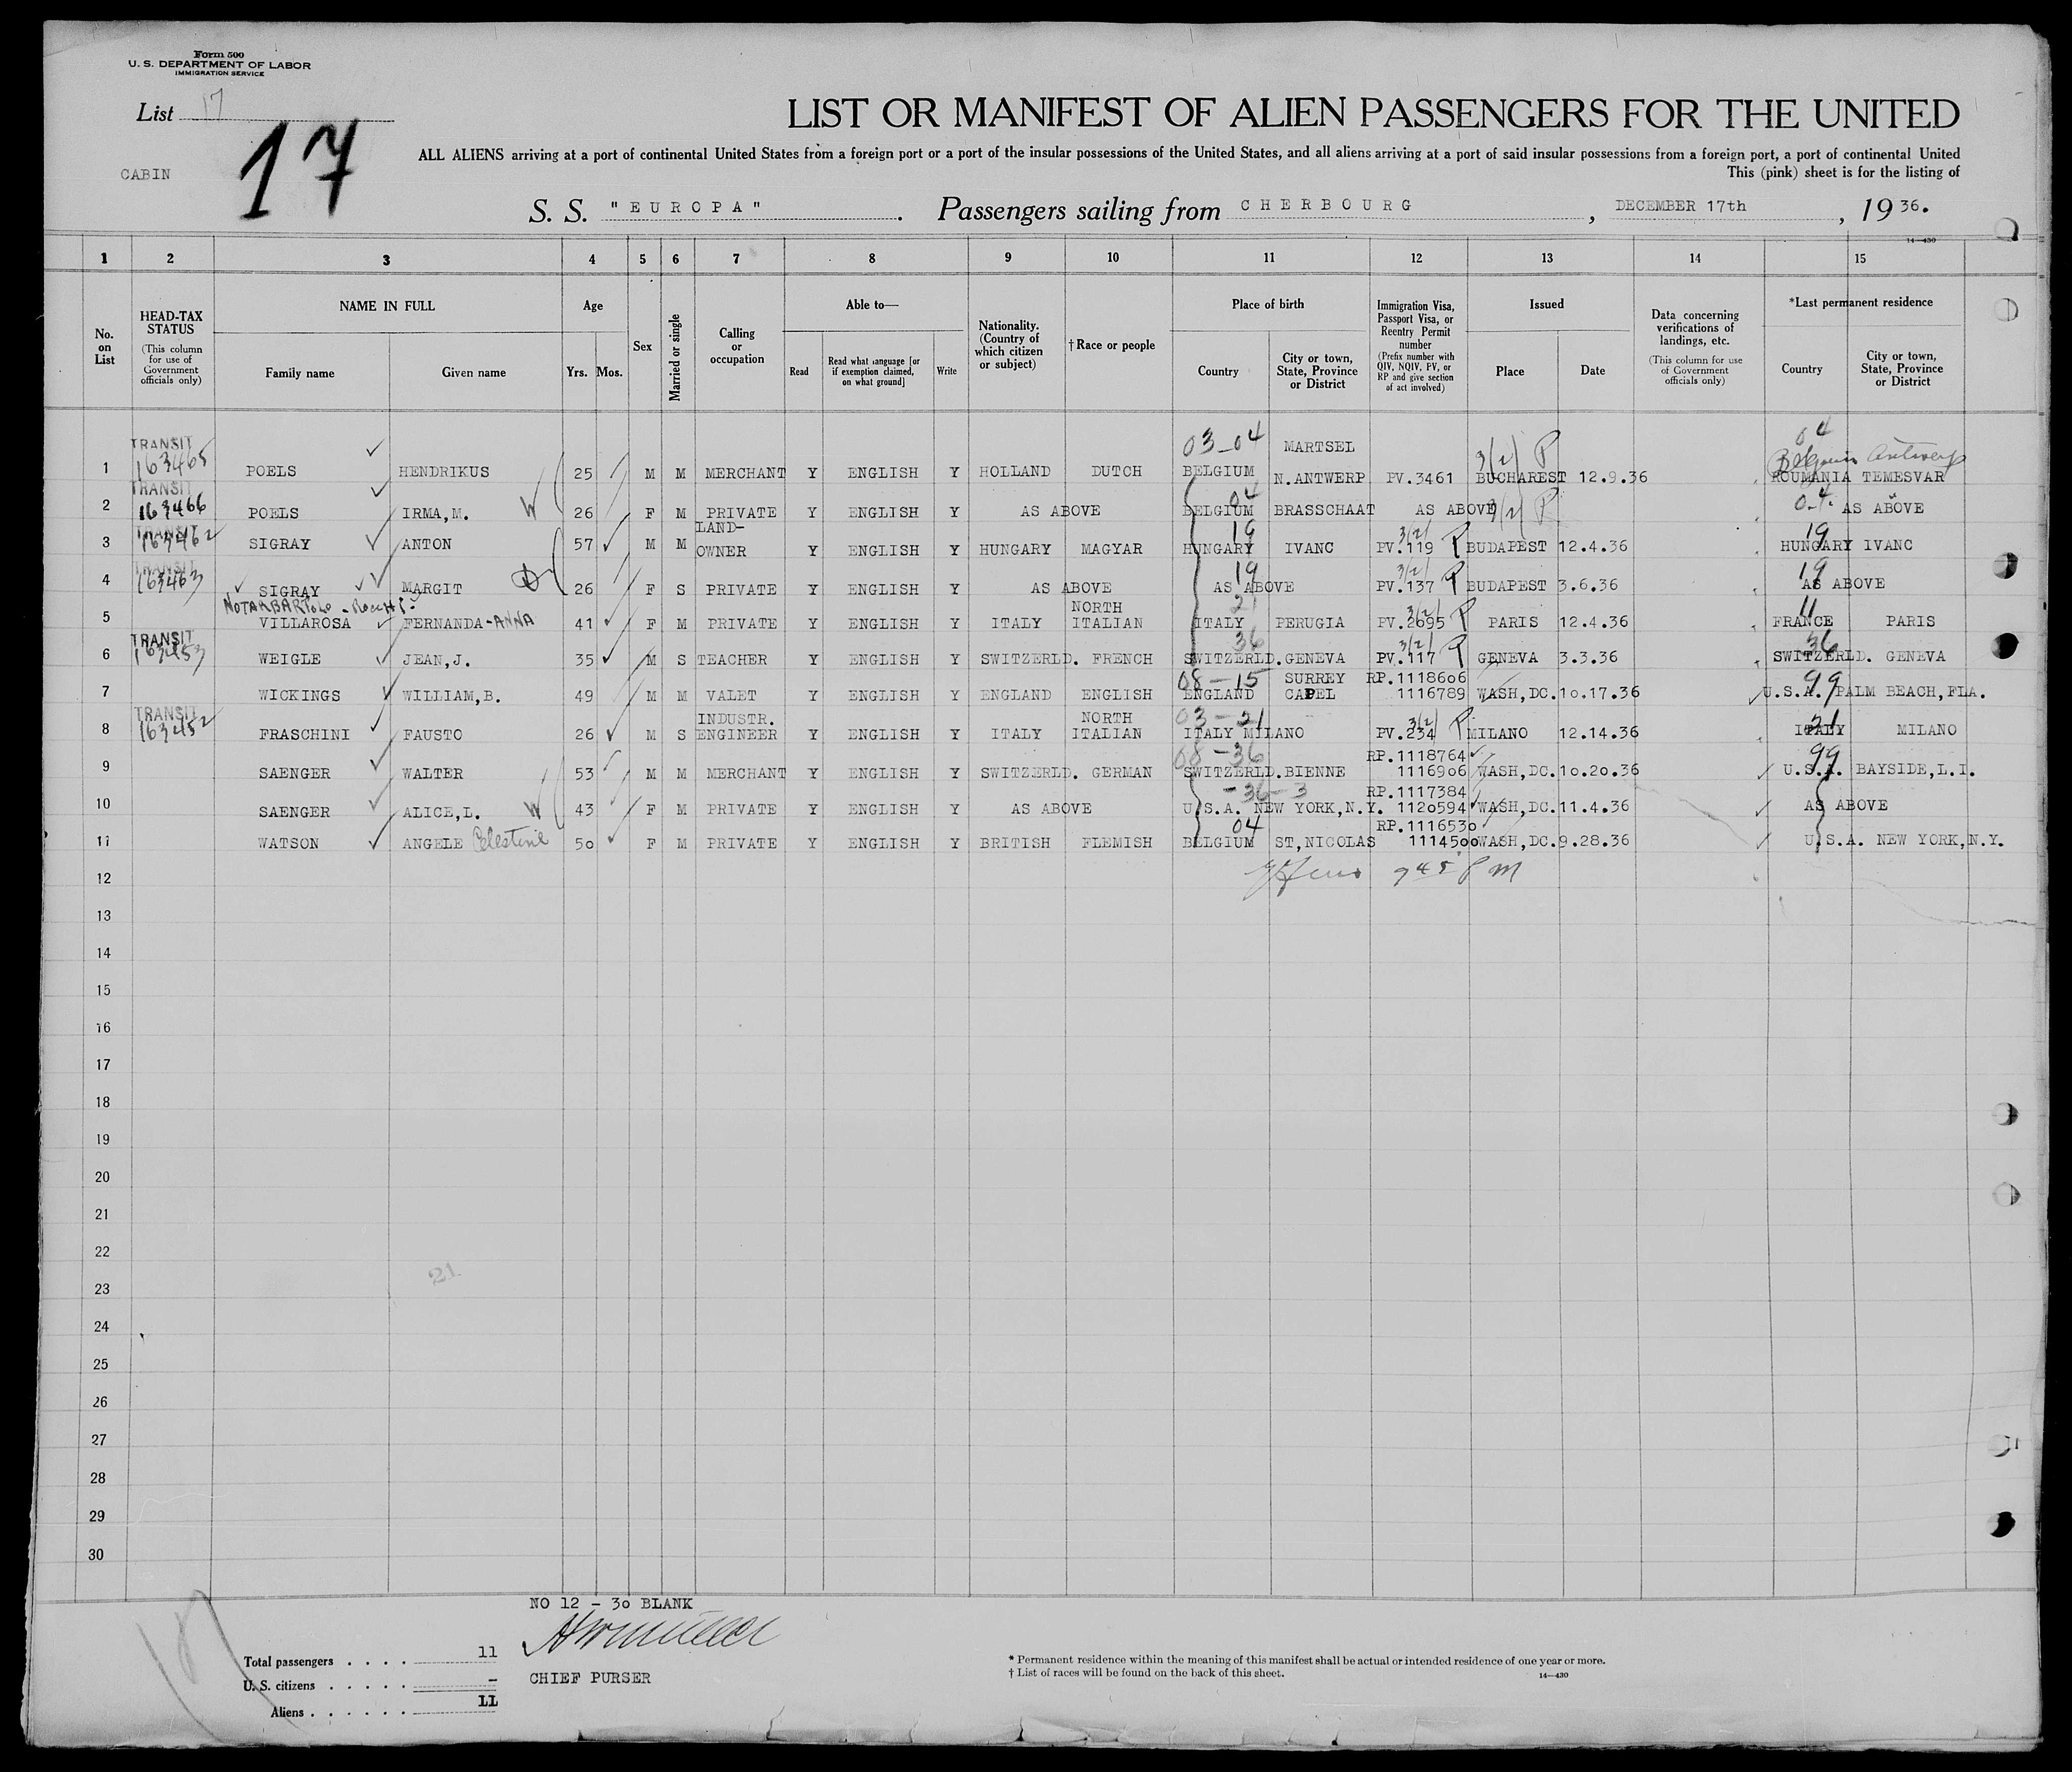 Form 500
U. S. DEPARTMENT OF LABOR
IMMIGRATION SERVICE
List 17
17
CABIN
LIST OR MANIFEST OF ALIEN PASSENGERS FOR THE UNITED
ALL ALIENS arriving at a port of continental United States from a foreign port or a port of the insular possessions of the United States, and all aliens arriving at a port of said insular possessions from a foreign port, a port of continental United
This (pink) sheet is for the listing of
S. S. "EUROPA". Passengers sailing from CHERBOURG, DECEMBER 17th, 19 36.
14—430
1 2 3 4 5 6 7 8 9 10 11 12 13 14 15
No. on List
HEAD-TAX STATUS (This column for use of Government officials only)
NAME IN FULL
Family name Given name
Age
Yrs. Mos.
Sex
Married or single
Calling or occupation
Able to—
Read Read what language [or if exemption claimed, on what ground] Write
Nationality. (Country of which citizen or subject)
†Race or people
Place of birth
Country City or town, State, Province or District
Immigration Visa, Passport Visa, or Reentry Permit number (Prefix number with QIV, NQIV, PV, or RP and give section of act involved)
Issued
Place Date
Data concerning verifications of landings, etc. (This column for use of Government officials only)
*Last permanent residence
Country City or town, State, Province or District
TRANSIT 03-04 MARTSEL 3(2) P 04 Belgium Antwerp
1 163465 POELS HENDRIKUS 25 M M MERCHANT Y ENGLISH Y HOLLAND DUTCH BELGIUM N.ANTWERP PV.3461 BUCHAREST 12.9.36 ROUMANIA TEMESVAR
TRANSIT 04 3(2) P 04
2 163466 POELS IRMA,M. W 26 F M PRIVATE Y ENGLISH Y AS ABOVE BELGIUM BRASSCHAAT AS ABOVE AS ABOVE
TRANSIT LAND- 19 3(2) P 19
3 163462 SIGRAY ANTON 57 M M OWNER Y ENGLISH Y HUNGARY MAGYAR HUNGARY IVANC PV.119 BUDAPEST 12.4.36 HUNGARY IVANC
TRANSIT 19 3(2) P 19
4 163463 SIGRAY MARGIT D 26 F S PRIVATE Y ENGLISH Y AS ABOVE AS ABOVE PV.137 BUDAPEST 3.6.36 AS ABOVE
NOTARBARTOLO NORTH 21 3(2) P 11
5 VILLAROSA FERNANDA-ANNA 41 F M PRIVATE Y ENGLISH Y ITALY ITALIAN ITALY PERUGIA PV.2695 PARIS 12.4.36 FRANCE PARIS
TRANSIT 36 3(2) P 36
6 163453 WEIGLE JEAN,J. 35 M S TEACHER Y ENGLISH Y SWITZERLD. FRENCH SWITZERLD. GENEVA PV.117 GENEVA 3.3.36 SWITZERLD. GENEVA
08-15 SURREY RP.1118606 99
7 WICKINGS WILLIAM,B. 49 M M VALET Y ENGLISH Y ENGLAND ENGLISH ENGLAND CAPEL 1116789 WASH,DC. 10.17.36 U.S.A. PALM BEACH,FLA.
TRANSIT INDUSTR. NORTH 03-21 3(2) P 21
8 163452 FRASCHINI FAUSTO 26 M S ENGINEER Y ENGLISH Y ITALY ITALIAN ITALY MILANO PV.234 MILANO 12.14.36 ITALY MILANO
08-36 RP.1118764 99
9 SAENGER WALTER 53 M M MERCHANT Y ENGLISH Y SWITZERLD. GERMAN SWITZERLD. BIENNE 1116906 WASH,DC. 10.20.36 U.S.A. BAYSIDE,L.I.
-36-3 RP.1117384
10 SAENGER ALICE,L. W 43 F M PRIVATE Y ENGLISH Y AS ABOVE U.S.A. NEW YORK,N.Y. 1120594 WASH,DC. 11.4.36 AS ABOVE
04 RP.1116530
11 WATSON ANGELE Celestine 50 F M PRIVATE Y ENGLISH Y BRITISH FLEMISH BELGIUM ST,NICOLAS 1114500 WASH,DC. 9.28.36 U.S.A. NEW YORK,N.Y.
12 9 45 P M
13
14
15
16
17
18
19
20
21
22
21
23
24
25
26
27
28
29
30
NO 12 - 30 BLANK
Total passengers . . . . 11
CHIEF PURSER
U. S. citizens . . . . . -
Aliens . . . . . . 11
* Permanent residence within the meaning of this manifest shall be actual or intended residence of one year or more.
† List of races will be found on the back of this sheet.
14—430